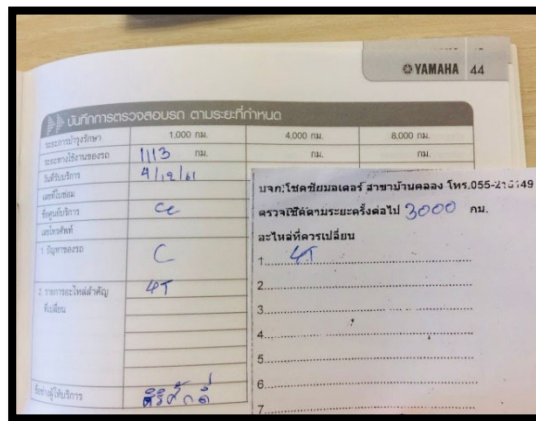 YAMAHA 44
บันทึกการตรวจสอบรถ ตามระยะที่กำหนด
ระยะการบำรุงรักษา 1,000 กม. 4,000 กม. 8,000 กม.
ระยะทางใช้งานของรถ 1113 กม. กม. กม.
วันที่รับบริการ 4/12/61
เลขที่ใบซ่อม
ชื่อศูนย์บริการ
เลขโทรศัพท์
1. ปัญหาของรถ C
2. รายการอะไหล่สำคัญ 4T
ที่เปลี่ยน
ชื่อช่างผู้ให้บริการ ศิริศักดิ์
บจก.โชคชัยมอเตอร์ สาขาบ้านคลอง โทร.055-
ตรวจเช็คตามระยะครั้งต่อไป 3000 กม.
อะไหล่ที่ควรเปลี่ยน
1. 4T
2.
3.
4.
5.
6.
7.